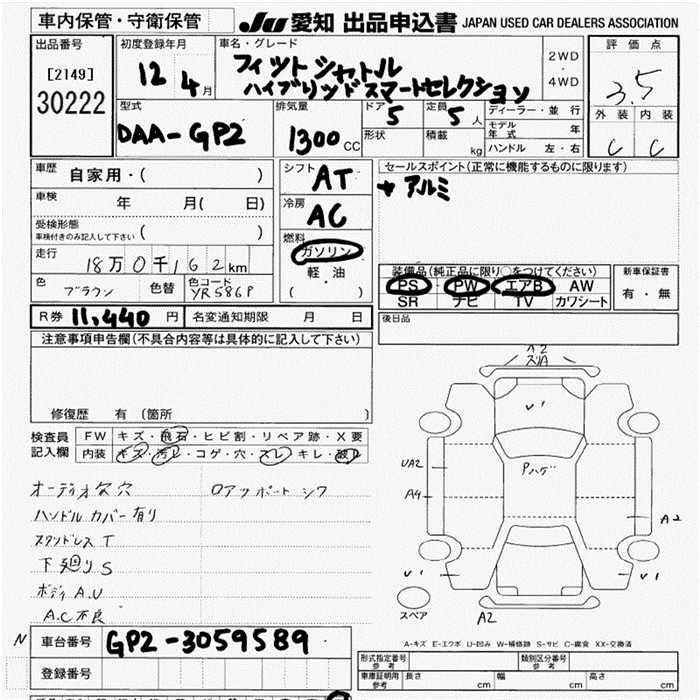 車内保管・守衛保管
JU 愛知 出品申込書 JAPAN USED CAR DEALERS ASSOCIATION
出品番号
[2149]
30222
初度登録年月
12 4月
車名・グレード
フィットシャトル
ハイブリッドスマートセレクション
2WD
・
4WD
評価点
3.5
外装 内装
C C
型式
DAA-GP2
排気量
1300 CC
ドア
5
形状
定員
5人
積載 kg
ディーラー・並行
モデル年式 年
ハンドル 左・右
車歴
自家用・( )
車検 年 月( 日)
受検形態
車検付きのみ記入して下さい ( )
走行
18万0千162km
色 ブラウン 色替 色コード YR586P
シフト
AT
冷房
AC
燃料
ガソリン
軽・油
( )
セールスポイント(正常に機能するものに限ります)
+ アルミ
装備品(純正品に限り○をつけてください)
PS PW エアB AW
SR ナビ TV カワシート
新車保証書
有・無
後日品
R券 11,440 円 名変通知期限 月 日
注意事項申告欄(不具合内容等は具体的に記入して下さい)
修復歴 有 (箇所 )
検査員記入欄
FW キズ・飛石・ヒビ割・リペア跡・X要
内装 キズ・汚レ・コゲ・穴・スレ・キレ・破レ
オーディオ欠穴 ロアサポートシワ
ハンドルカバー有り
ステンドレスT
下廻りS
ボディA.U
A.C不良
A2
スリA
U1
UA2
Pハゲ
A4
A2
U1
U1
スペア
A2
A-キズ E-エクボ U-凹み W-補修跡 S-サビ C-腐食 XX-交換済
N
車台番号 GP2-3059589
登録番号
形式指定番号
参考
類別区分番号
参考
車庫証明用
参考
長さ cm 幅 cm 高さ cm